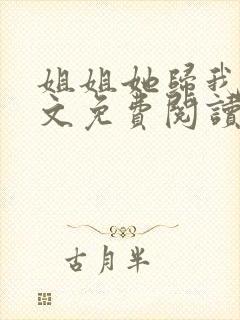 姐姐她歸我
文免費閱讀
古月半